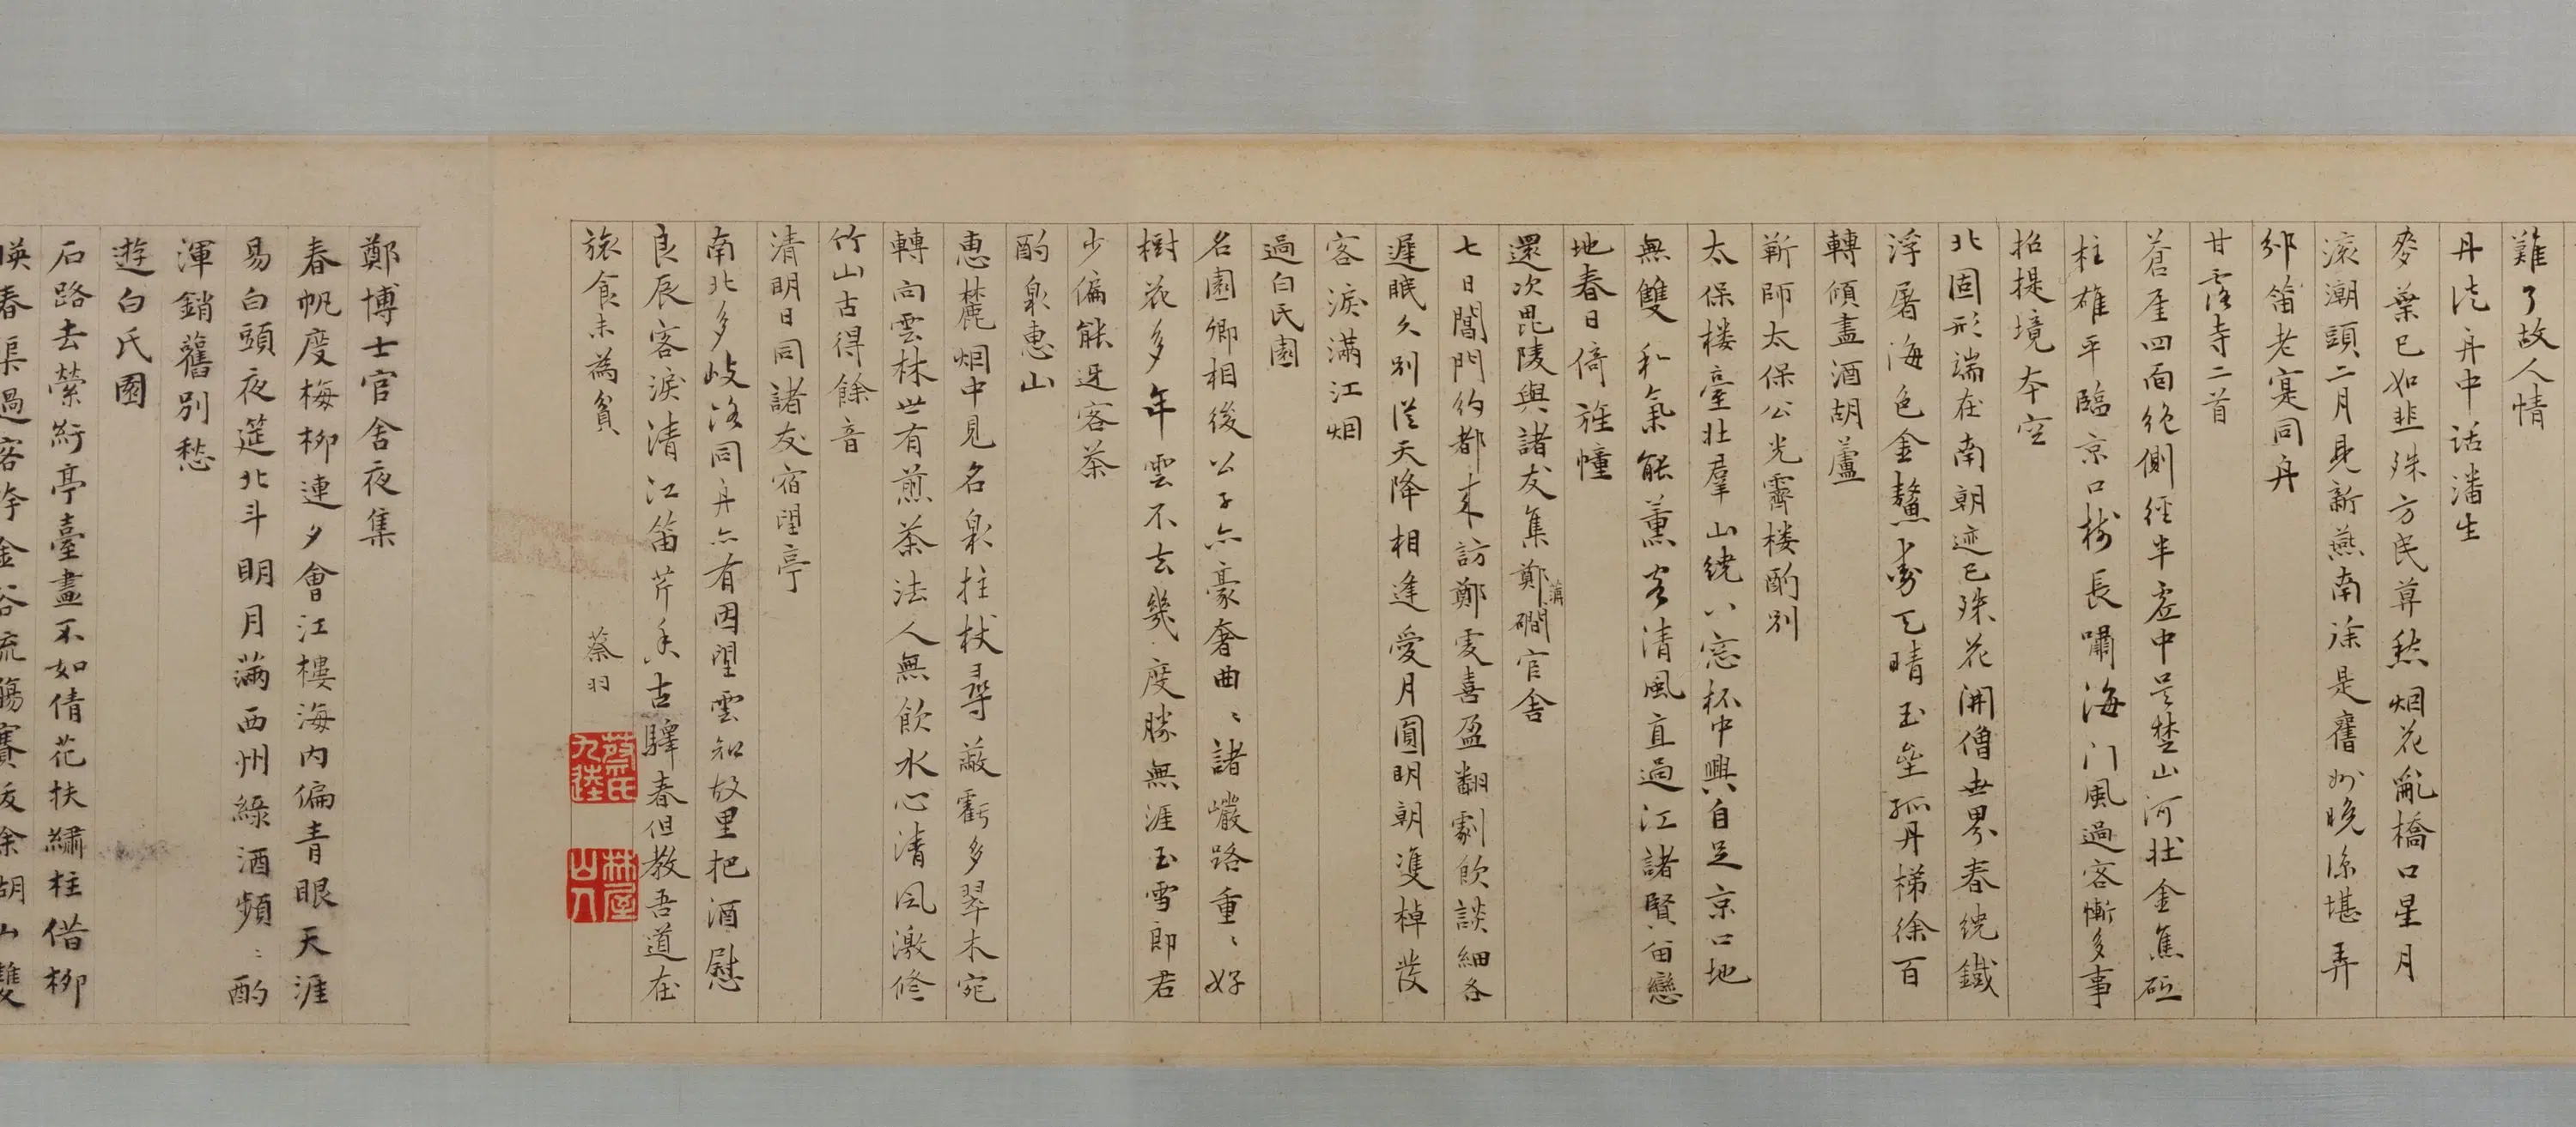 難了故人情
丹徒舟中話潘生
麥葉已如韭殊方民草愁烟花亂橋口星月
滾潮頭二月見新燕南徐是舊州晚涼堪弄
邻笛老寔同舟
甘露寺二首
蒼崖四面絶側徑半虛中吴楚山河壯金焦砥
柱雄平臨京口樹長嘯海门風過客慚多事
招提境本空
北固形端在南朝迹已殊花開僧世界春繞鐵
浮屠海色金鰲動天晴玉壘孤丹梯徐百
轉傾盡酒胡蘆
靳師太保公光霽楼酌别
太保楼臺壯羣山繞八窓杯中興自足京口地
無雙和氣能薰客清風直過江諸賢留戀
地春日倚旌幢
還次毘陵與諸友集鄭蒲磵官舍
七日閶門約都来訪鄭虔喜盈翻劇飲談細各
遲眠久别從天降相逢愛月圓明朝雙棹发
客淚滿江烟
過白氏園
名園卿相後公子亦豪奢曲〻諸巖路重〻好
樹花多年雲不去幾度勝無涯玉雪郎君
少偏能迓客茶
酌泉惠山
惠麓烟中見名泉拄杖尋蔽虧多翠木宛
轉向雲林世有煎茶法人無飲水心清風激修
竹山古得餘音
清明日同諸友宿望亭
南北多岐路同舟亦有因望雲知故里把酒慰
良辰客淚清江笛芹香古驛春但教吾道在
旅食未為貧
蔡羽
蔡氏九逵
林屋山人
鄭博士官舍夜集
春帆度梅柳連夕會江樓海内偏青眼天涯
易白頭夜筵北斗明月滿西州綠酒頻〻酌
渾銷舊別愁
遊白氏園
石路去縈紆亭臺畫不如倩花扶繡柱借柳
映春渠過客停金谷流觴賽友余胡山雙